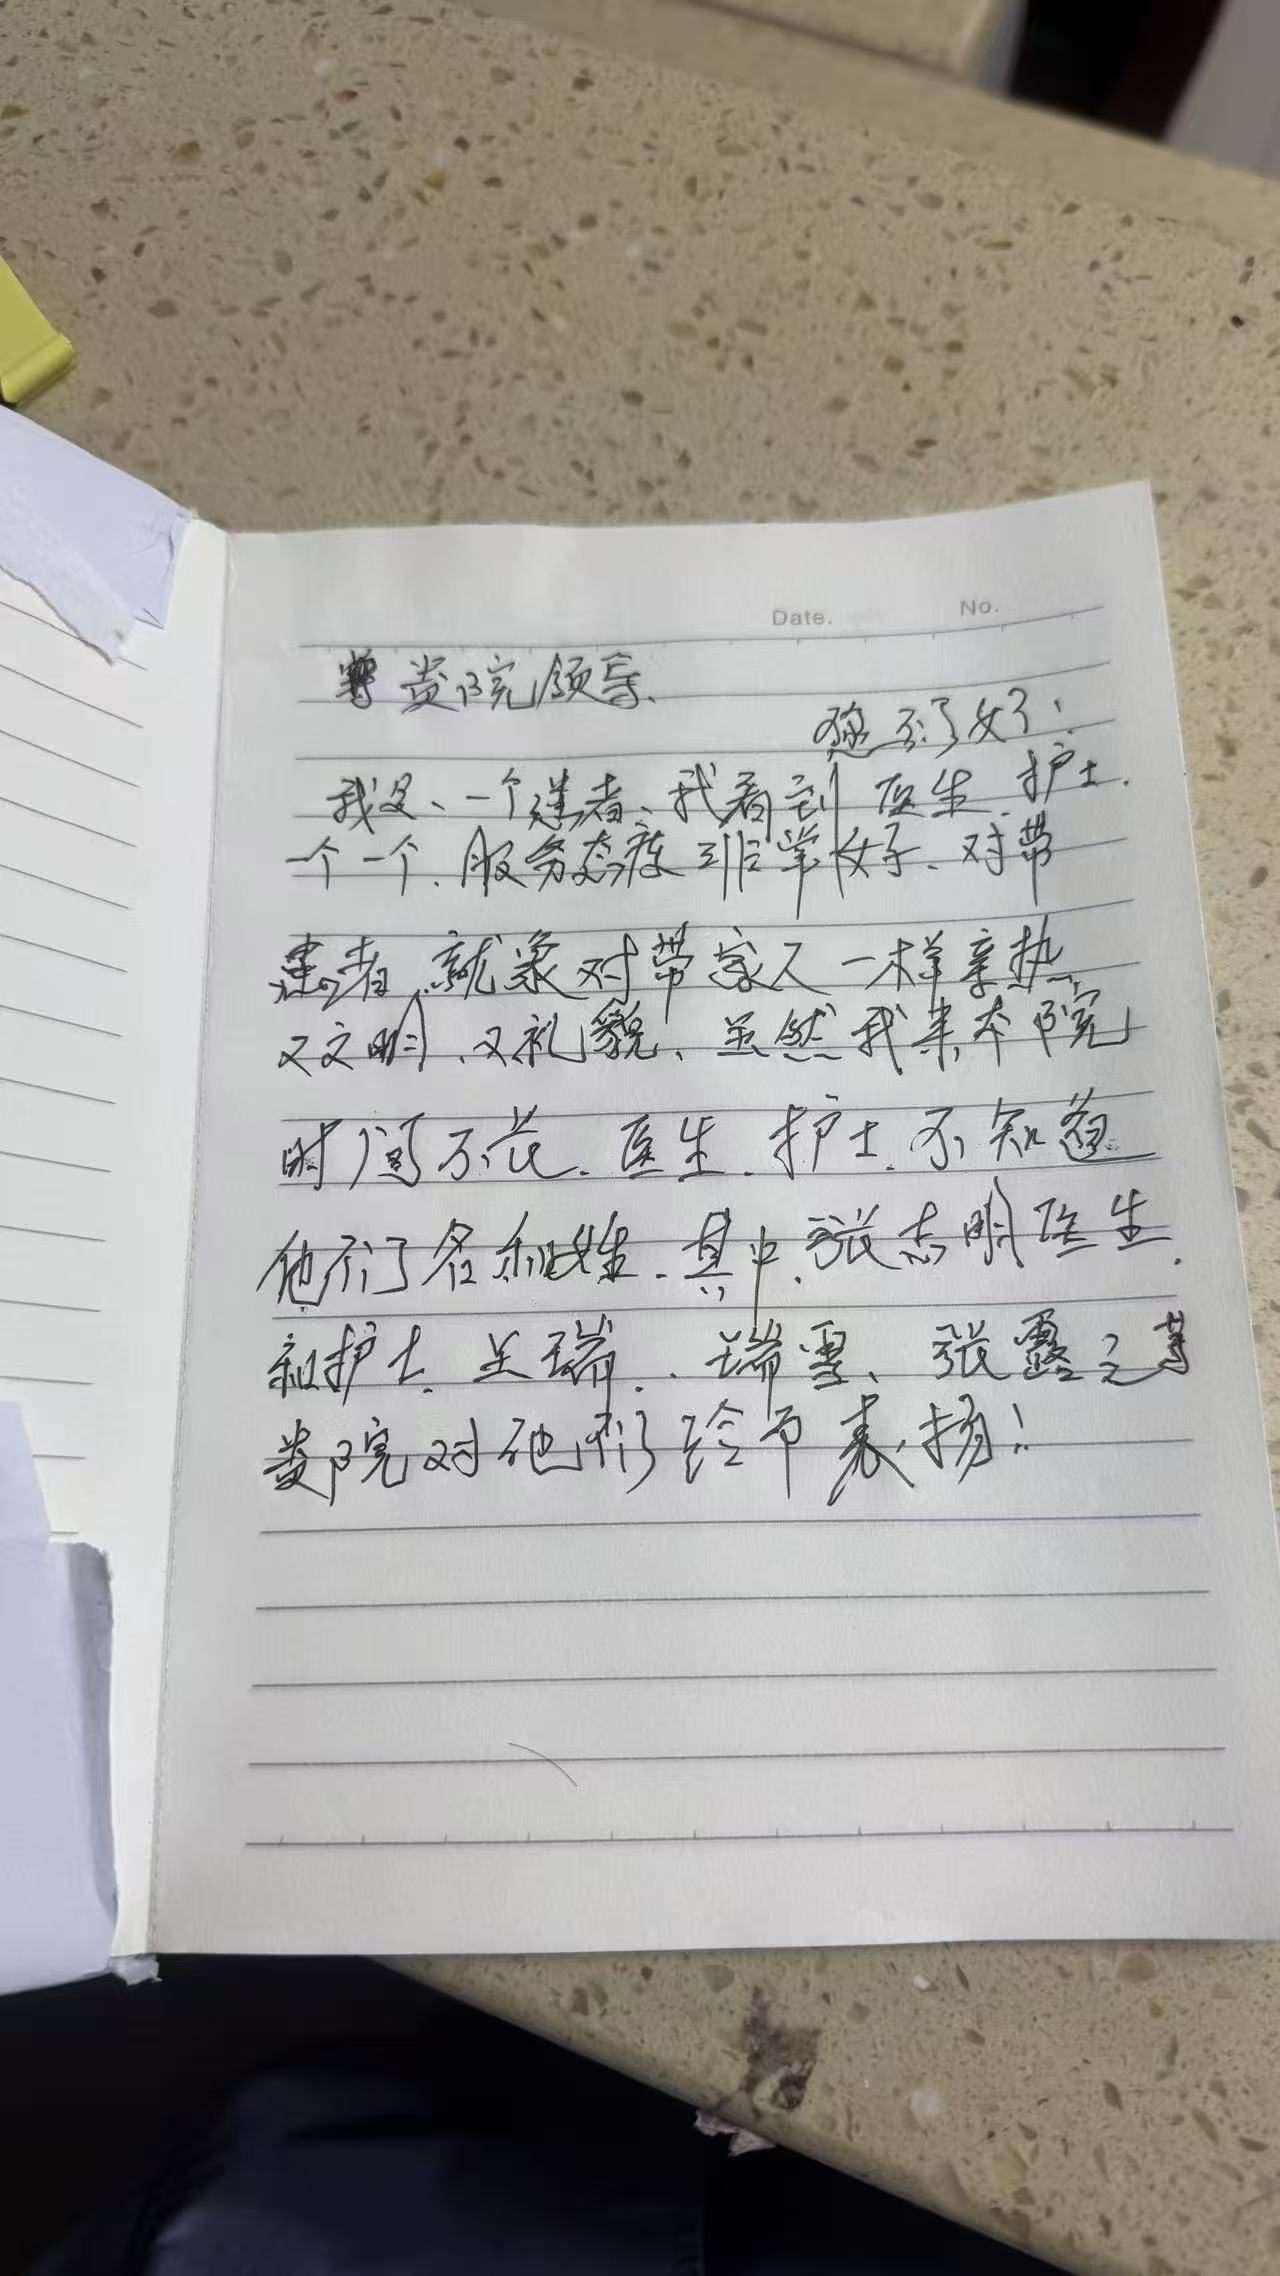 Date. No.
贵院领导.
您们好!
我是、一个患者、我看到医生.护士.
一个一个.服务态度非常好、对带
患者就象对带家人一样亲热
又文明、又礼貌、虽然我来本院
时间不长.医生.护士.不知道
他们名和姓.其中.张志明医生.
和护士.吴瑞..瑞雪、张露之等
贵院对他们给予表扬!